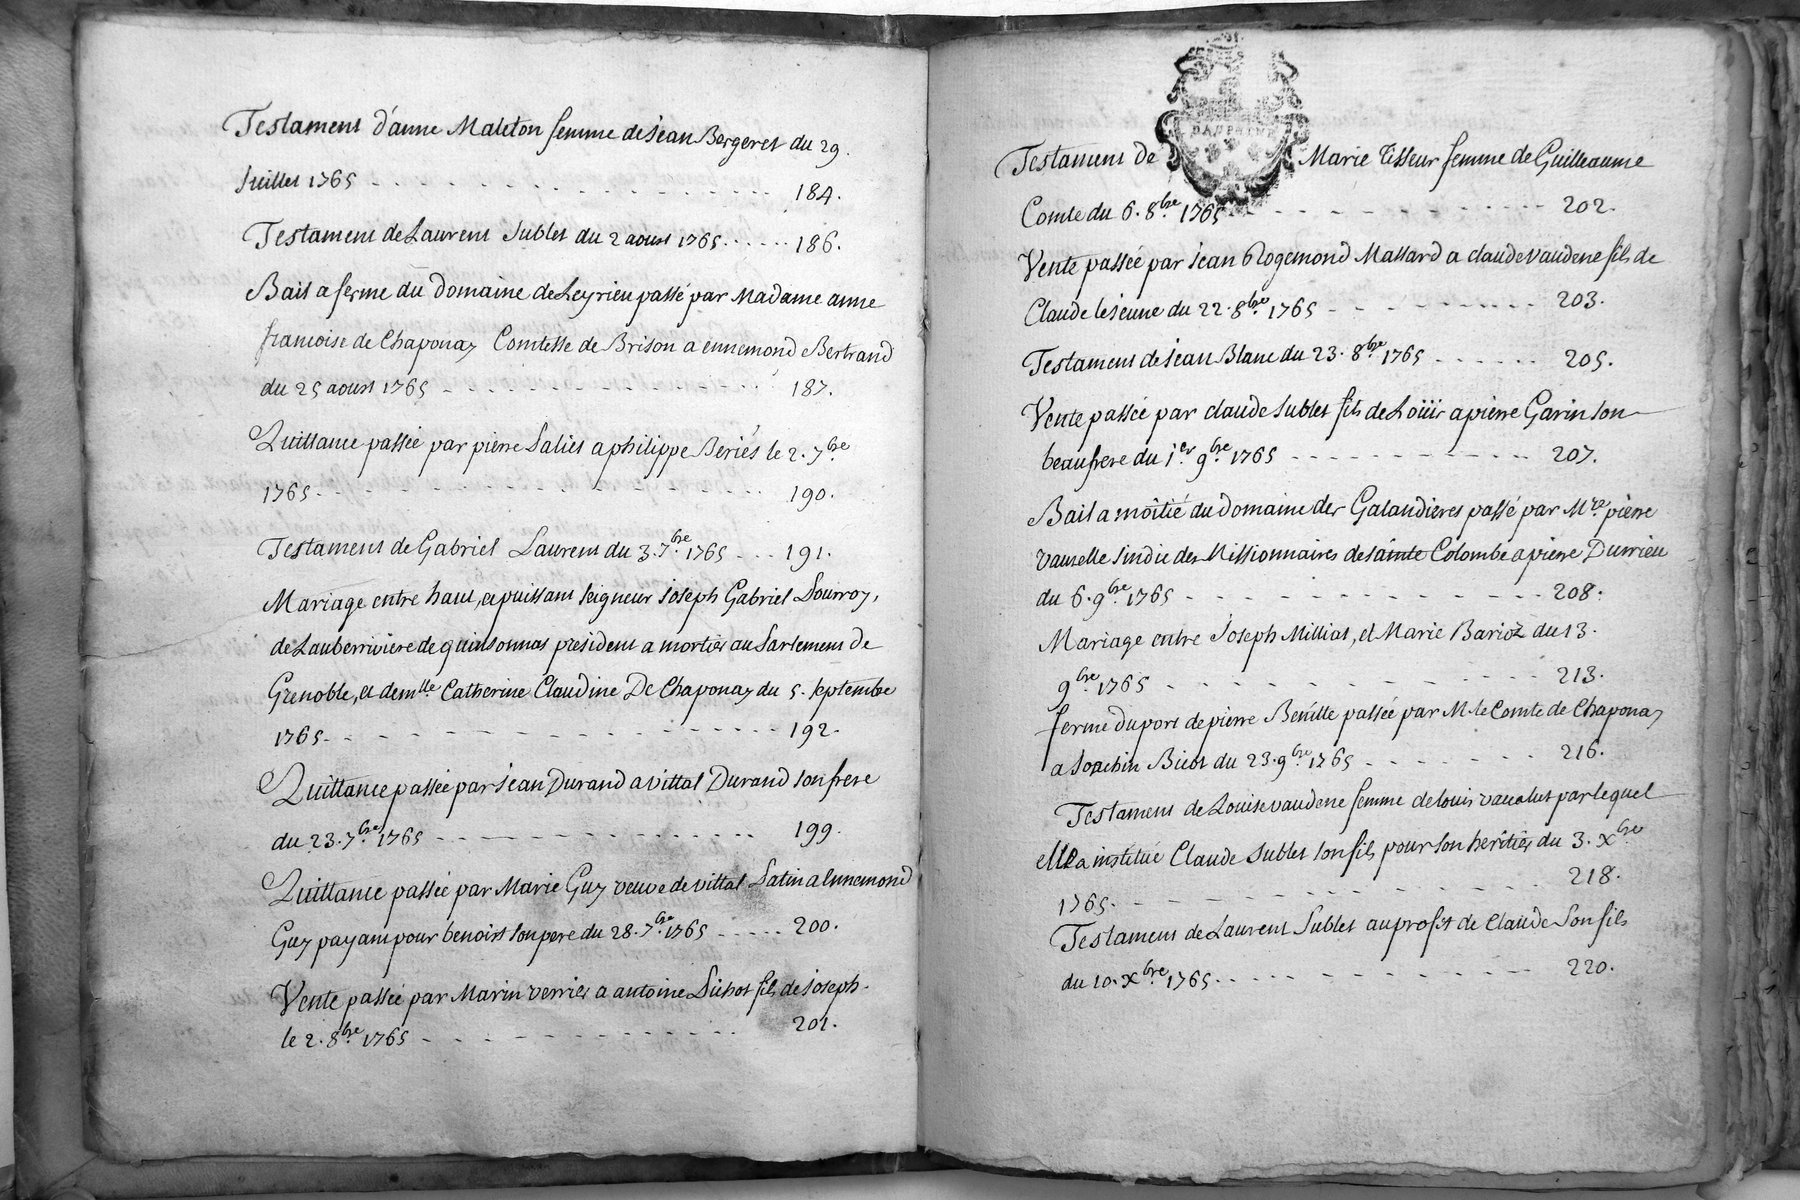 Testament d'anne Maleton femme de jean Bergeret du 29.
Juillet 1765 - - - - - - - - - - 184.
Testament de Laurent Sublet du 2 aoust 1765 - - - - - 186.
Bail a ferme du Domaine de Leyrieu passé par Madame anne
francoise de Chaponay Comtesse de Brison a ennemond Bertrand
du 25 aoust 1765 - - - - - - - - - - 187.
Quittance passée par pierre a philippe Beriés le 2. 7bre
1765 - - - - - - - - - - 190.
Testament de Gabriel Laurent du 3. 7bre 1765 - - - 191.
Mariage entre haut, et puissant seigneur joseph Gabriel
de Lauberriviere de quinsonnas president a mortier au Parlement de
Grenoble, et demlle Catherine Claudine De Chaponay du 5. septembre
1765 - - - - - - - - - - 192.
Quittance passée par jean Durand a vittal Durand son frere
du 23. 7bre 1765 - - - - - - - - - - 199.
Quittance passée par Marie Guy veuve de vittal a ennemond
Guy payant pour benoist son pere du 28. 7bre 1765 - - - - - 200.
Vente passée par Marin verrier a antoine fils de joseph
le 2. 8bre 1765 - - - - - - - - - - 201.
DAUPHINE
Testament de Marie Tisseur femme de Guilleaume
Comte du 6. 8bre 1765 - - - - - - - - - - 202.
Vente passée par jean Rogemond Massard a claude vaudene fils de
Claude le jeune du 22. 8bre 1765 - - - - - - - - 203.
Testament de jean Blanc du 23. 8bre 1765 - - - - - - 205.
Vente passée par claude Sublet fils de Loüis a pierre Garin son
beaufrere du 1er 9bre 1765 - - - - - - - - - - 207.
Bail a moitié du Domaine des Galandieres passé par Mre pierre
vauzelle sindic des Missionnaires de sainte Colombe a pierre Durrieu
du 6. 9bre 1765 - - - - - - - - - - 208.
Mariage entre Joseph Milliat, et Marie Barioz du 13.
9bre 1765 - - - - - - - - - - 213.
ferme du port de pierre passée par M. le Comte de Chaponay
a Joachin Biest du 23. 9bre 1765 - - - - - - - 216.
Testament de Louise vaudene femme de louis par lequel
elle a institué Claude Sublet son fils pour son heritier du 3. Xbre
1765 - - - - - - - - - - 218.
Testament de Laurent Sublet au profit de Claude Son fils
du 10. Xbre 1765 - - - - - - - - - - 220.